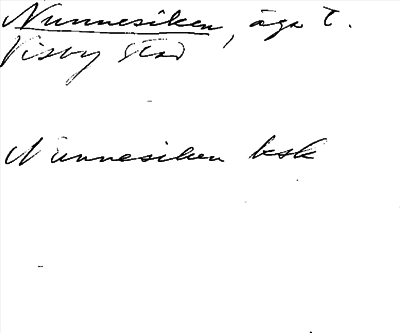 Nunnesiken, äga t.
Visby stad
Nunnesiken bsk